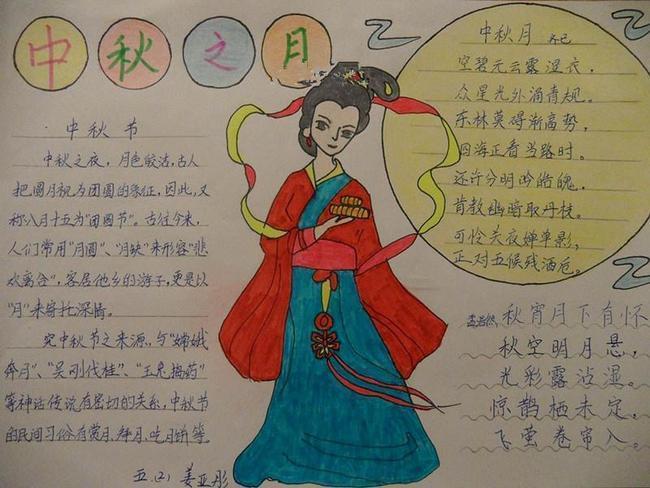 中秋之月
中秋节
中秋之夜，月色皎洁，古人
把圆月视为团圆的象征，因此，又
称八月十五为"团圆节"。古往今来，
人们常用"月圆"、"月缺"来形容"悲
欢离合"，客居他乡的游子，更是以
"月"来寄托深情。
究中秋节之来源，与"嫦娥
奔月"、"吴刚伐桂"、"玉兔捣药"
等神话传说有密切的关系，中秋节
的民间习俗有赏月、拜月、吃月饼等。
五.(2) 姜亚彤
中秋月 齐己
空碧无云露湿衣，
众星光外涌青规。
东林莫碍渐高势，
四海正看当路时。
还许分明吟皓魄，
肯教幽暗取丹枝。
可怜关夜婵单影，
正对五候残酒卮。
孟浩然 秋宵月下有怀
秋空明月悬，
光彩露沾湿。
惊鹊栖未定，
飞萤卷帘入。